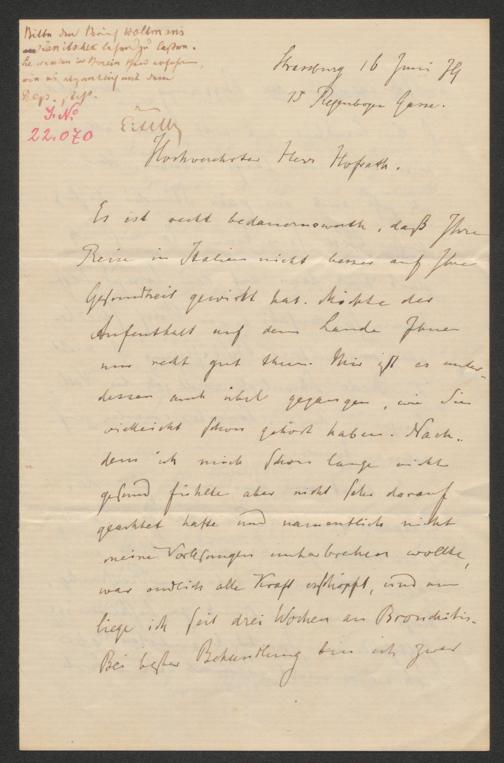 Bitte den Brief Woltmanns
lesen zu lassen.
Sie werden
Strassburg 16 Juni 79
15 Regenbogen Gasse.
J. No
22.070
Eitelb
Hochverehrter Herr Hofrath.
Es ist recht bedauernswerth, daß Ihre
Reise in Italien nicht besser auf Ihre
Gesundheit gewirkt hat. Möchte der
Aufenthalt auf dem Lande Ihnen
nur recht gut thun. Mir ist es unter-
dessen auch übel gegangen, wie Sie
vielleicht schon gehört haben. Nach-
dem ich mich schon lange nicht
gesund fühlte aber nicht sehr darauf
geachtet hatte und namentlich nicht
meine Vorlesungen unterbrechen wollte,
war endlich alle Kraft erschöpft, und nun
liege ich seit drei Wochen an Bronchitis.
Bei bester Behandlung bin ich zwar